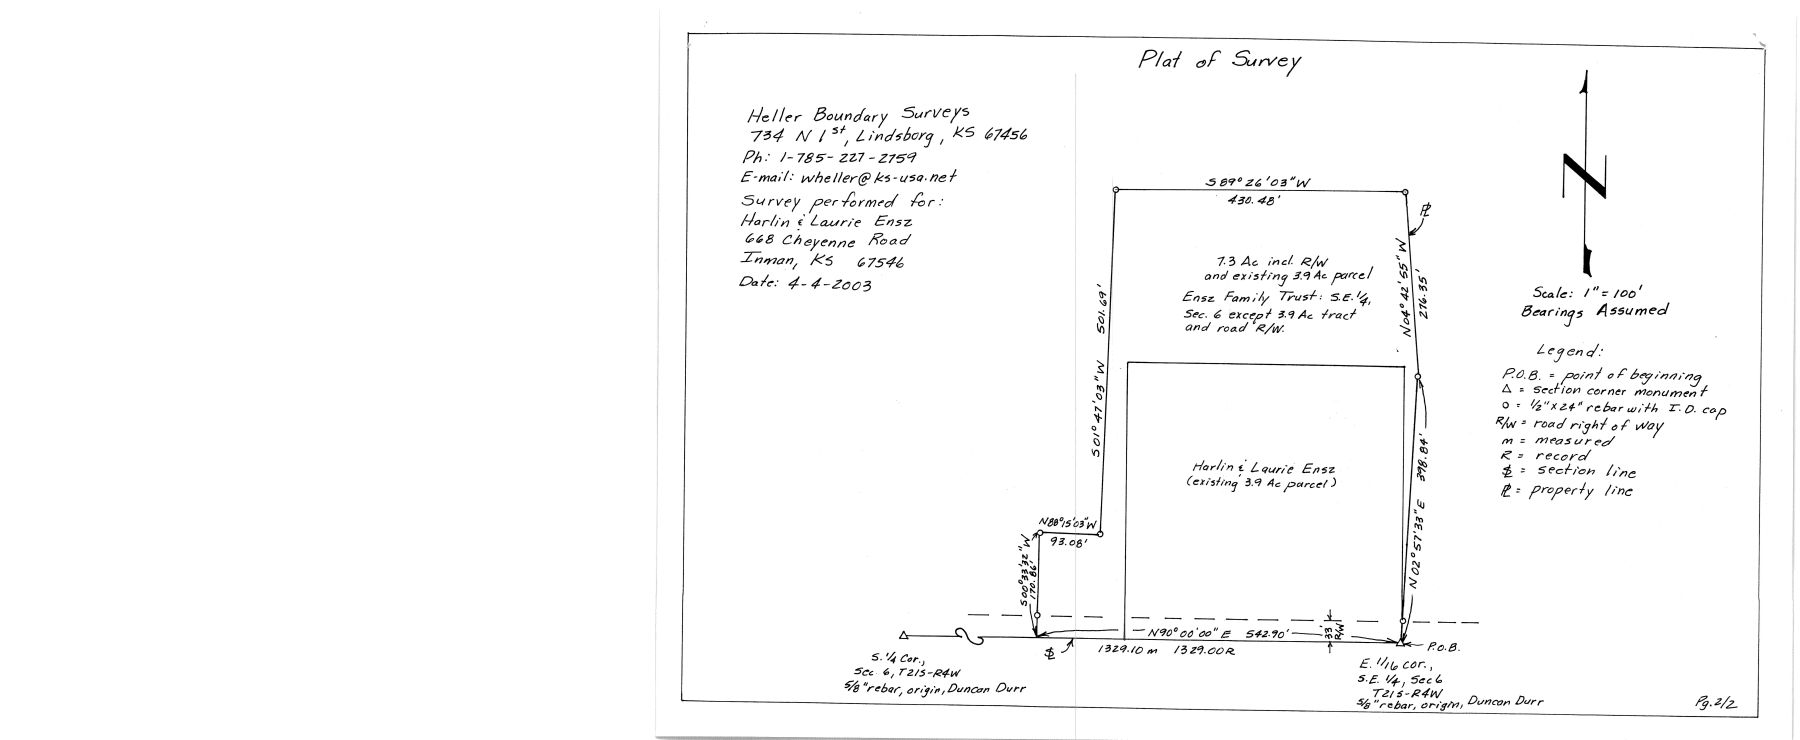 Plat of Survey
Heller Boundary Surveys
734 N 1st, Lindsborg, KS 67456
Ph: 1-785-227-2759
E-mail: wheller@ks-usa.net
Survey performed for:
Harlin & Laurie Ensz
668 Cheyenne Road
Inman, KS 67546
Date: 4-4-2003
N
Scale: 1"=100'
Bearings Assumed
Legend:
P.O.B. = point of beginning
△ = section corner monument
o = 1/2"x24" rebar with I.D. cap
R/W = road right of way
m = measured
R = record
SL = section line
PL = property line
S89°26'03"W
430.48'
PL
N04°42'55"W
276.35'
7.3 Ac incl. R/W
and existing 3.9 Ac parcel
Ensz Family Trust: S.E. 1/4,
Sec. 6 except 3.9 Ac tract
and road R/W.
S01°47'03"W 501.69'
Harlin & Laurie Ensz
(existing 3.9 Ac parcel)
N02°57'33"E 398.84'
N88°15'03"W
93.08'
S00°33'32"W
170.86'
N90°00'00"E 542.90'
33'
R/W
SL
1329.10 m 1329.00 R
P.O.B.
S. 1/4 Cor.,
Sec 6, T21S-R4W
5/8" rebar, origin, Duncan Durr
E. 1/16 cor.,
S.E. 1/4, Sec 6
T21S-R4W
5/8" rebar, origin, Duncan Durr
Pg. 2/2